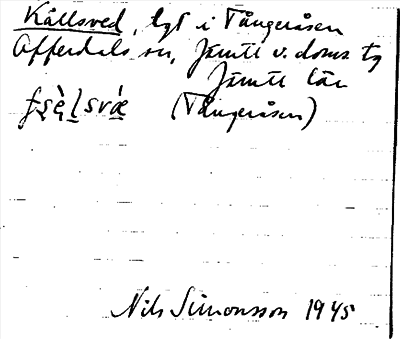 Kållsved, lgt i Tångeråsen
Offerdals sn, Jämtl v. doms. tg
Jämtl län
(Tångeråsen)
Nils Simonsson 1945